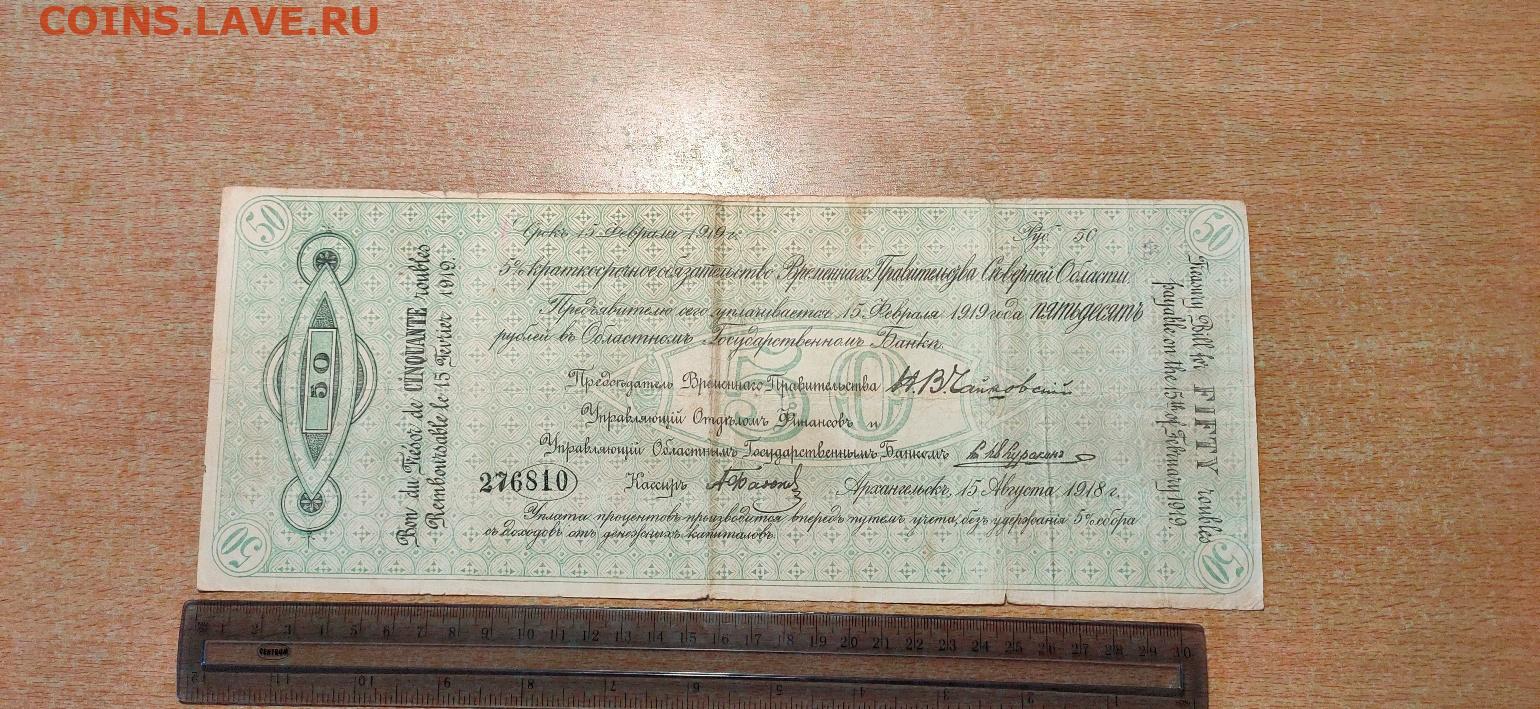 COINS.LAVE.RU
50
50
Срокъ 15 Февраля 1919 г.
Руб. 50
5% краткосрочное обязательство Временнаго Правительства Сѣверной Области.
Предъявителю сего уплачивается 15 Февраля 1919 года пятьдесятъ
рублей въ Областномъ Государственномъ Банкѣ.
50
Предсѣдатель Временнаго Правительства Н.В.Чайковский
Управляющій Отдѣломъ Финансовъ и
Управляющій Областнымъ Государственнымъ Банкомъ
276810
Кассиръ
Архангельскъ, 15 Августа 1918 г.
Уплата процентовъ производится впередъ путемъ учета, безъ удержанія 5% сбора
съ доходовъ отъ денежныхъ капиталовъ.
50
Bon du Trésor de CINQUANTE roubles
Remboursable le 15 Fevrier 1919.
Treasury Bill for FIFTY roubles
payable on the 15th of February 1919.
50
50
1 2 3 4 5 6 7 8 9 10 11 12 13 14 15 16 17 18 19 20 21 22 23 24 25 26 27 28 29 30
CENTRUM
12 11 10 9 8 7 6 5 4 3 2 1